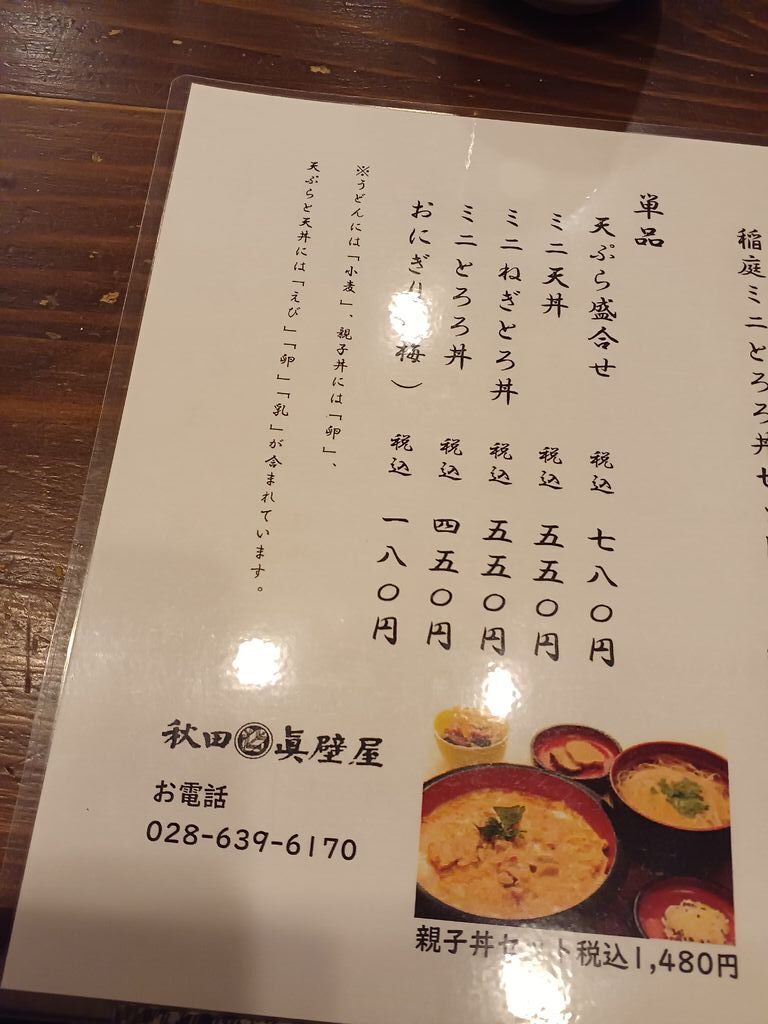 稲庭ミニとろろ丼セット
単品
天ぷら盛合せ 税込 七八〇円
ミニ天丼 税込 五五〇円
ミニねぎとろ丼 税込 五五〇円
ミニとろろ丼 税込 四五〇円
おにぎり（梅） 税込 一八〇円
※うどんには「小麦」、親子丼には「卵」、
天ぷらと天丼には「えび」「卵」「乳」が含まれています。
秋田 眞壁屋
お電話
028-639-6170
親子丼セット税込1,480円